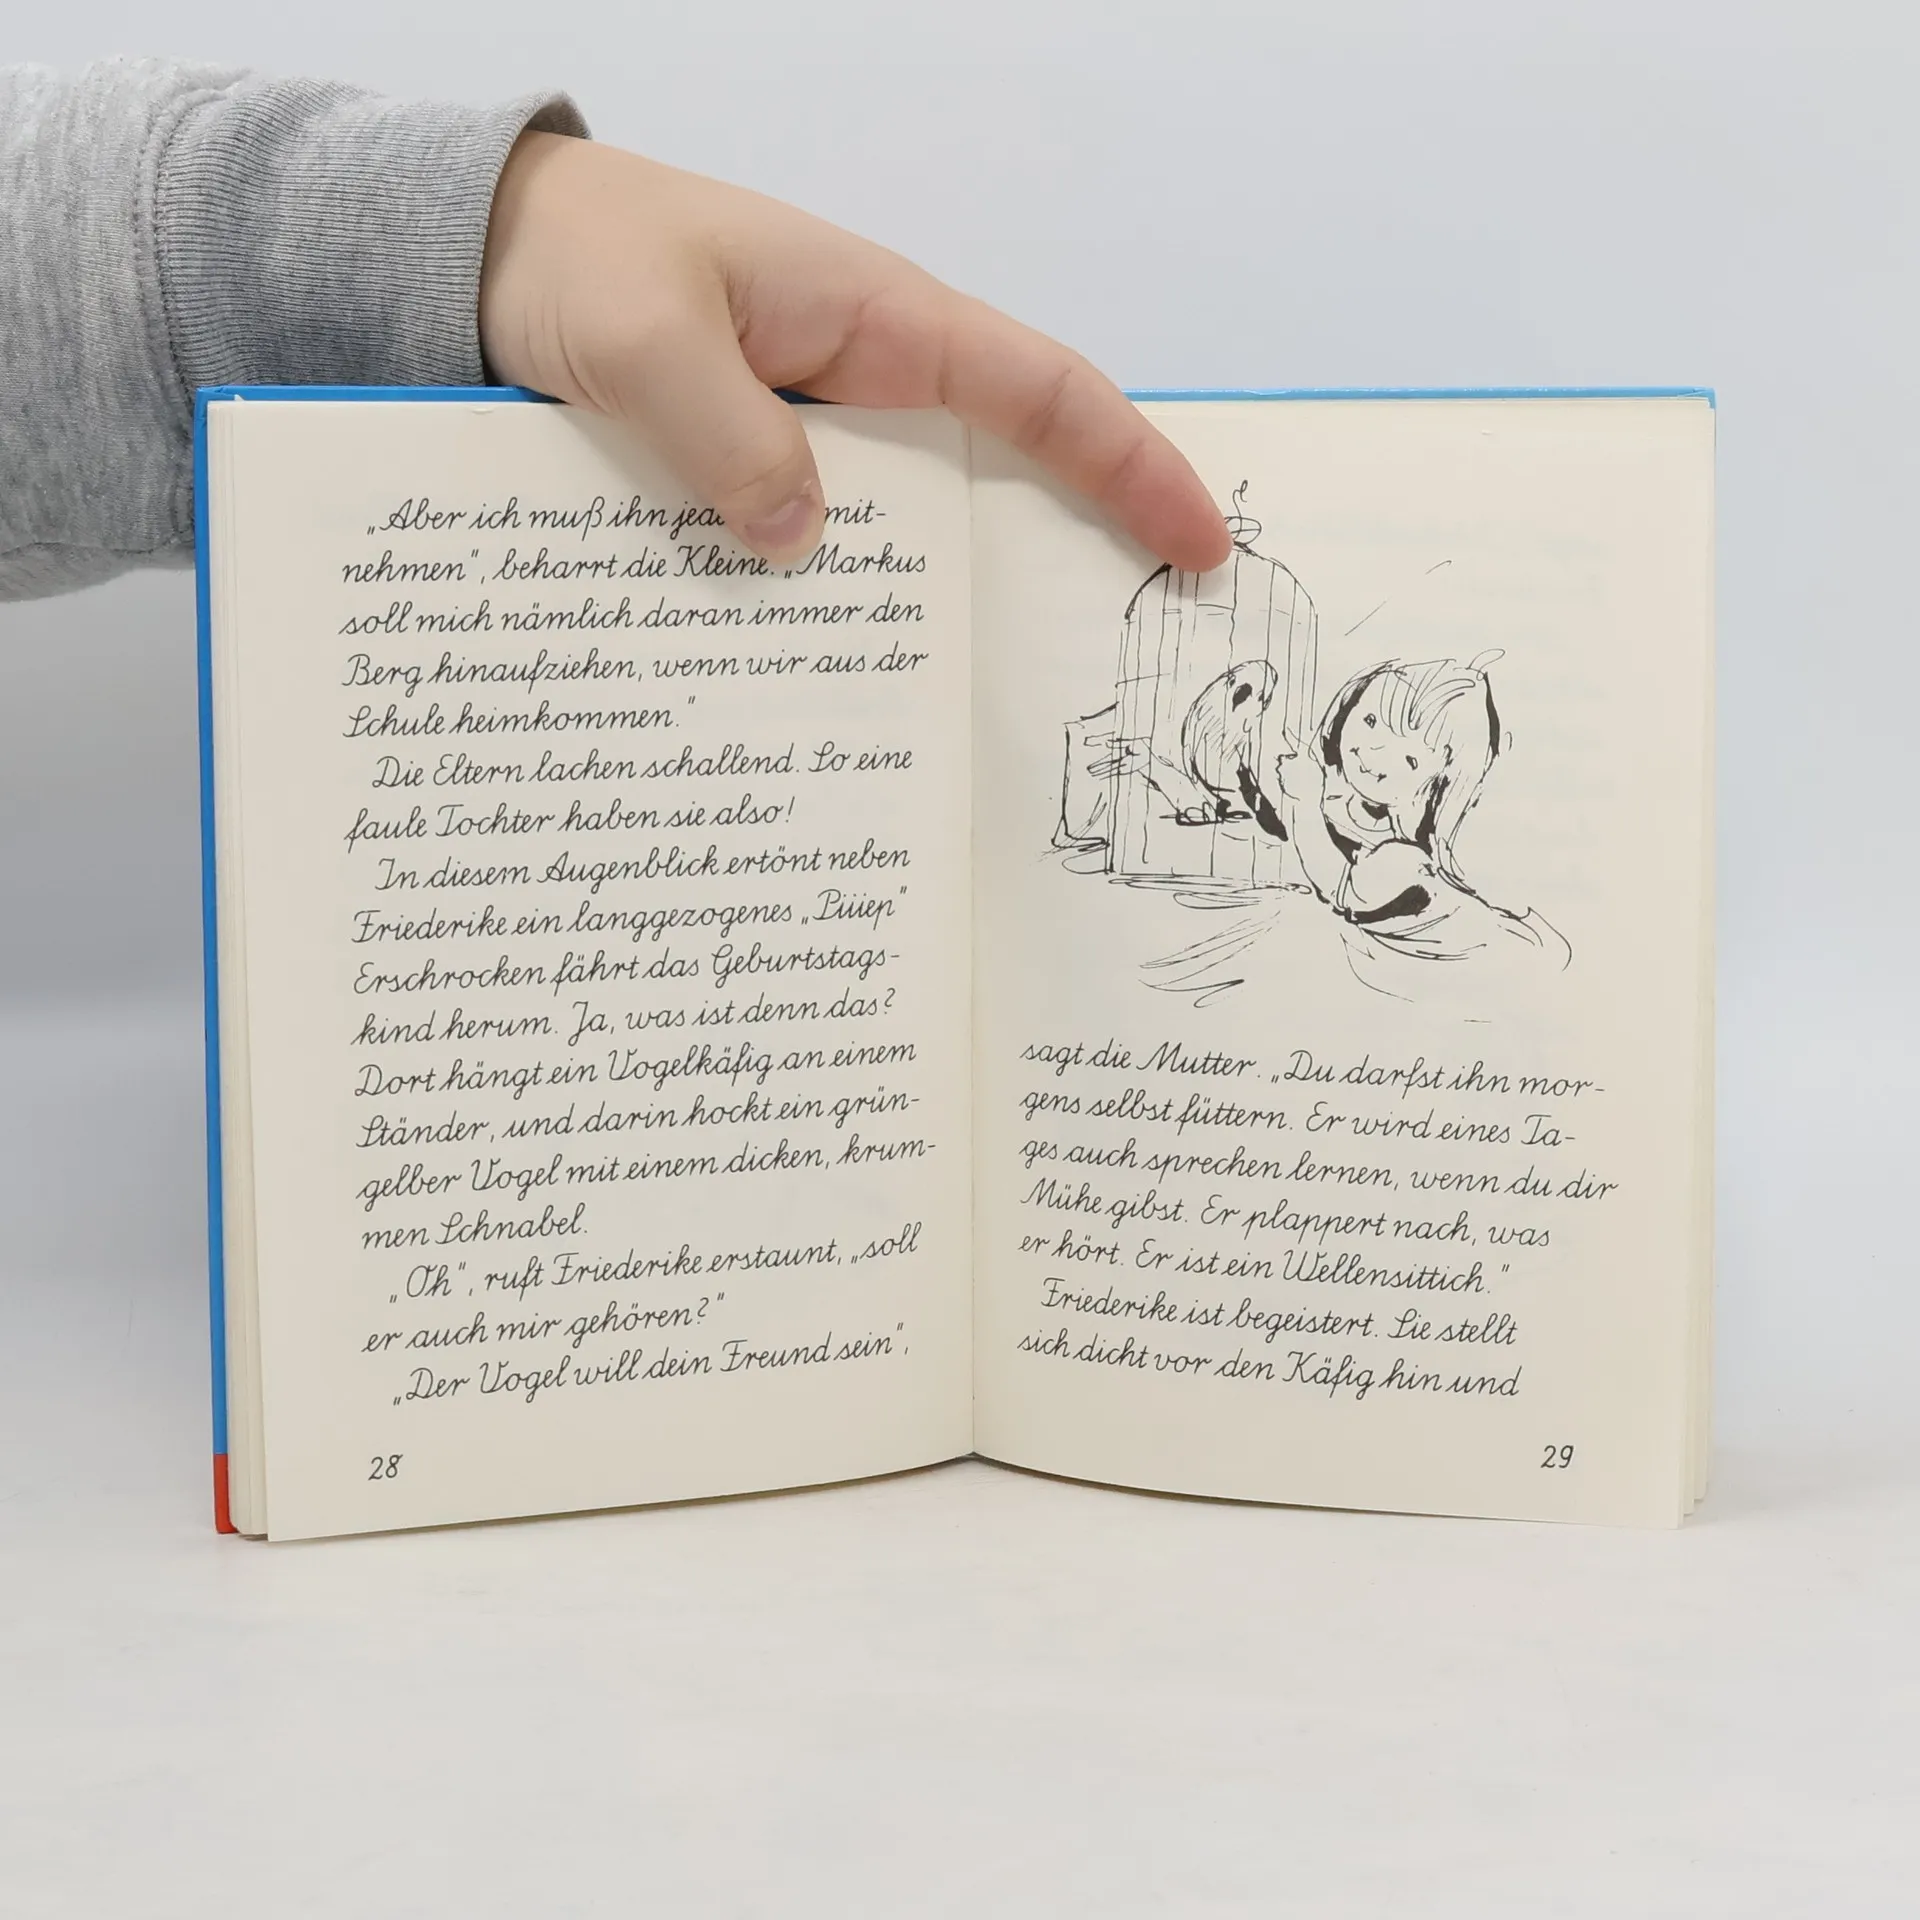 „Aber ich muß ihn mit-
nehmen", beharrt die Kleine. „Markus
soll mich nämlich daran immer den
Berg hinaufziehen, wenn wir aus der
Schule heimkommen."
Die Eltern lachen schallend. So eine
faule Tochter haben sie also!
In diesem Augenblick ertönt neben
Friederike ein langgezogenes „Piiiep"
Erschrocken fährt das Geburtstags-
kind herum. Ja, was ist denn das?
Dort hängt ein Vogelkäfig an einem
Ständer, und darin hockt ein grün-
gelber Vogel mit einem dicken, krum-
men Schnabel.
„Oh", ruft Friederike erstaunt, „soll
er auch mir gehören?"
„Der Vogel will dein Freund sein",
28
sagt die Mutter. „Du darfst ihn mor-
gens selbst füttern. Er wird eines Ta-
ges auch sprechen lernen, wenn du dir
Mühe gibst. Er plappert nach, was
er hört. Er ist ein Wellensittich."
Friederike ist begeistert. Sie stellt
sich dicht vor den Käfig hin und
29